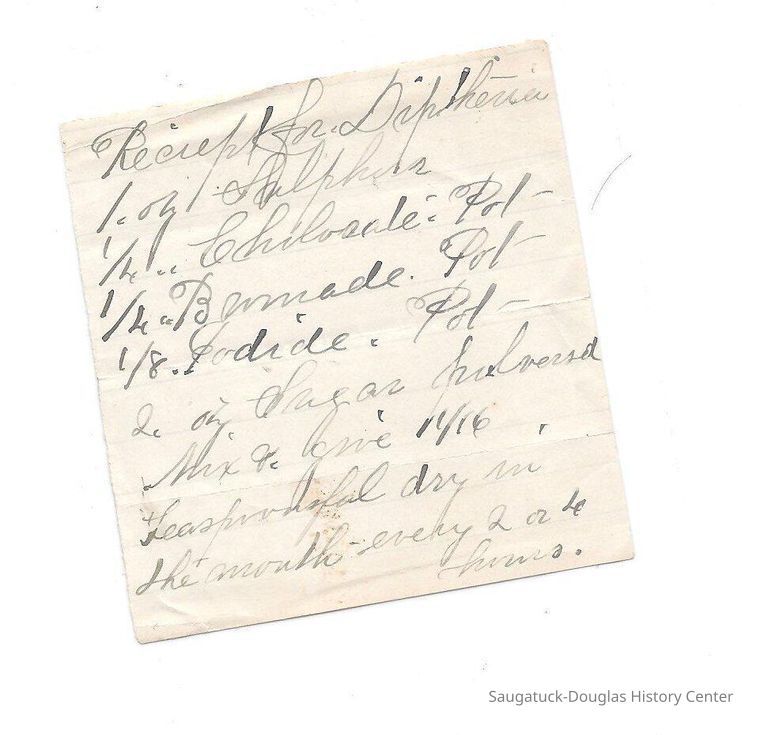 Reciept for Diptheria
1. oz Sulphur
1/4 " Chiloate. Pot-
1/4 " Bromade. Pot
1/8. Iodide. Pot-
2. oz Sugar pulversd
Mix & Give 1/16
teaspoonsful dry in
the mouth-every 2 or 4
hours.
Saugatuck-Douglas History Center